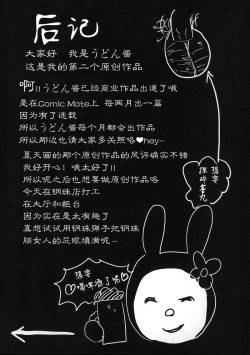 后记
大家好 我是うどん酱
这是我的第二个原创作品
啊!!うどん酱已经商业作品出道了哦
是在Comic Mate上 每两月出一篇
因为有了连载
所以うどん酱每个月都会出作品
所以那边也请大家多关照咯♥hey~
夏天画的那个原创作品的风评确实不错
我好开心!哦太好了!!
所以呢之后也想要做原创作品咯
今天在钢珠店打工
在大厅和柜台
因为实在是太有趣了
真想试试用钢珠弹子把钢珠
脑女人的屁眼填满呢~